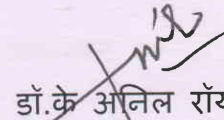 डॉ.के अनिल रॉय